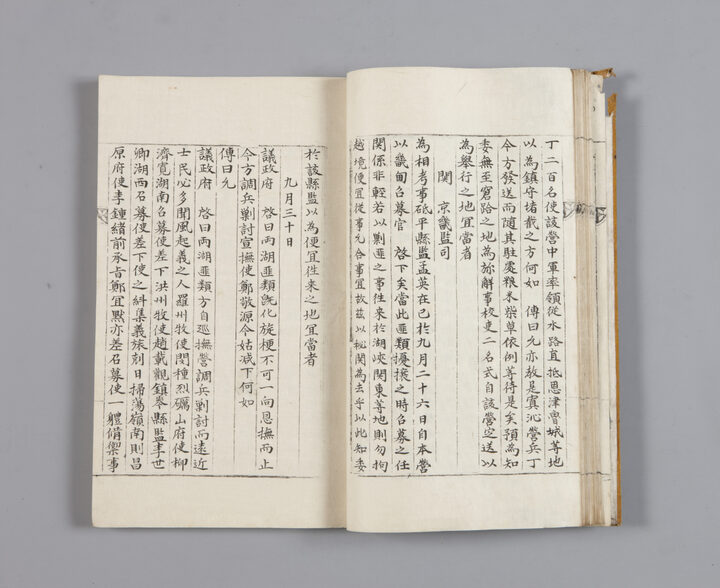 丁二百名使該營中軍率領從水路直抵恩津魯城等地
以為鎭守堵截之方何如 傳曰允亦敎是置沁營兵丁
今方發送而隨其駐處粮米柴草依例等待是矣預為知
委無至窘跲之地為旀解事校吏二名式自該營定送以
為擧行之地宜當者
關 京畿監司
為相考事砥平縣監孟英在已於九月二十六日自本營
以畿甸召募官 啓下矣當此匪類擾攘之時召募之任
關係非輕若以勦匪之事往來於湖峽關東等地則勿拘
越境便宜從事允合事宜故玆以秘關為去乎以此知委
於該縣監以為便宜往來之地宜當者
九月三十日
議政府 啓曰兩湖匪類旣化旋梗不可一向恩撫而止
今方調兵勦討宣撫使鄭敬源今姑減下何如
傳曰允
議政府 啓曰兩湖匪類方自巡撫營調兵勦討而遠近
士民必多聞風起義之人羅州牧使閔種烈礪山府使柳
濟寬湖南召募使差下洪州牧使趙載觀鎭岑縣監李世
卿湖西召募使差下使之糾集義旅刻日掃蕩嶺南則昌
原府使李鍾緖前承旨鄭宜默亦差召募使一軆備禦事